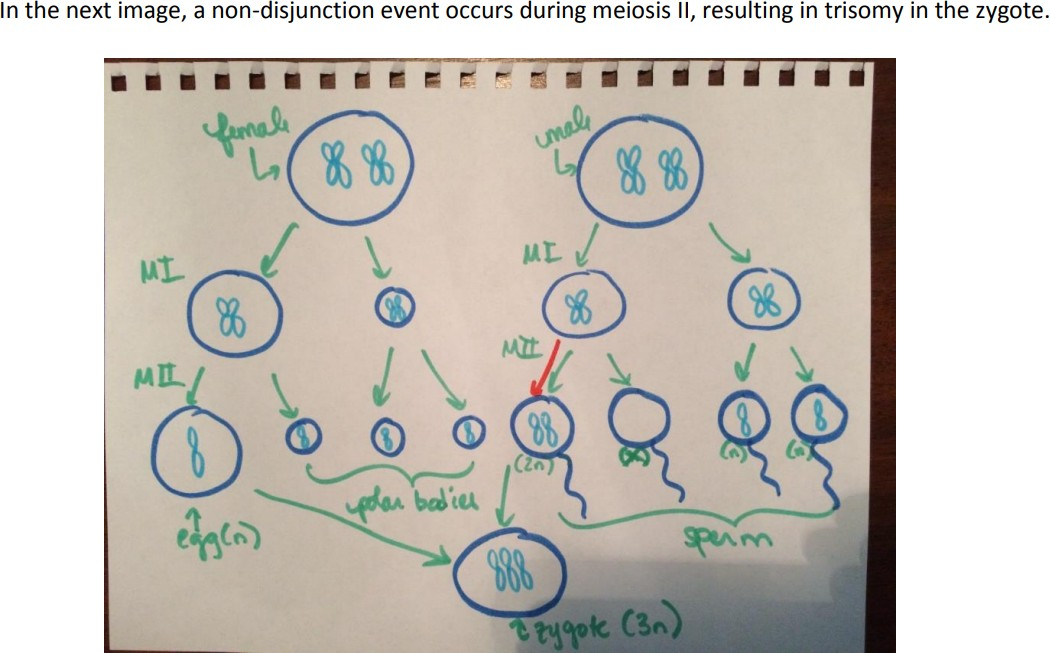 In the next image, a non-disjunction event occurs during meiosis II, resulting in trisomy in the zygote.
female
male
MI
MI
MII
MII
(2n)
(n)
(n)
polar bodies
egg(n)
sperm
zygote (3n)